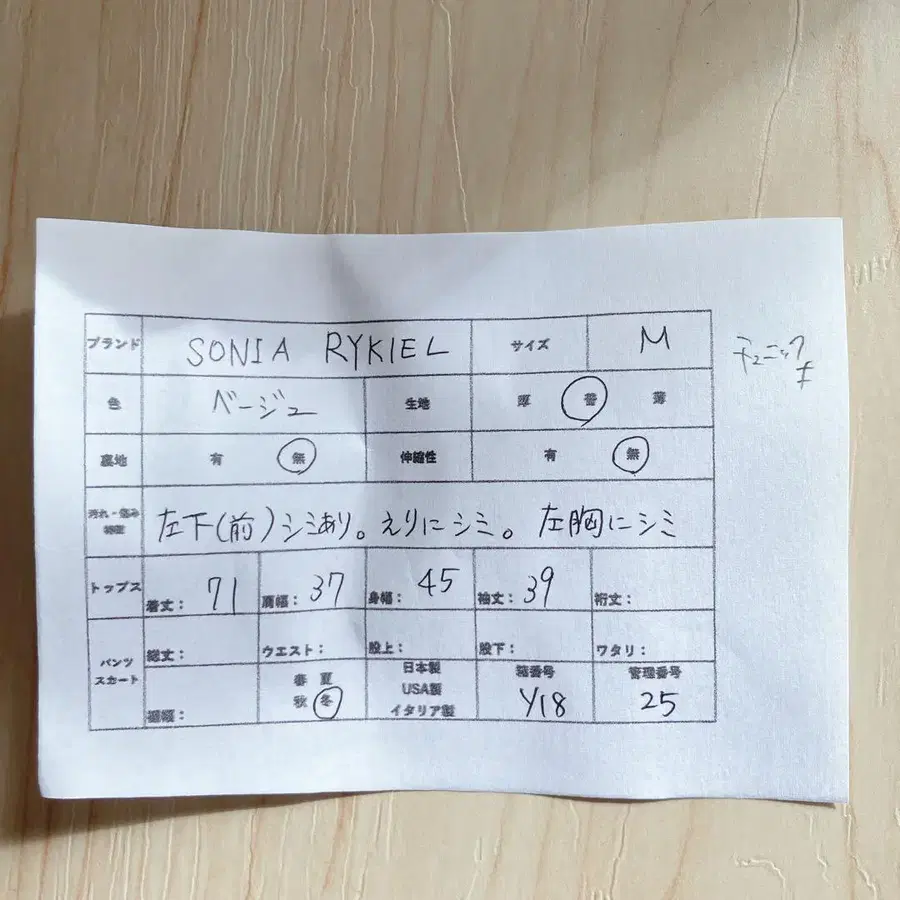 ブランド SONIA RYKIEL サイズ M
チュニック
色 ベージュ 生地 厚 普 薄
裏地 有 無 伸縮性 有 無
汚れ・傷み 左下(前)シミあり。えりにシミ。 左胸にシミ
トップス 着丈: 71 肩幅: 37 身幅: 45 袖丈: 39 裄丈:
パンツ スカート 総丈: ウエスト: 股上: 股下: ワタリ:
裾幅: 春 夏 秋 冬 日本製 USA製 イタリア製 箱番号 Y18 管理番号 25